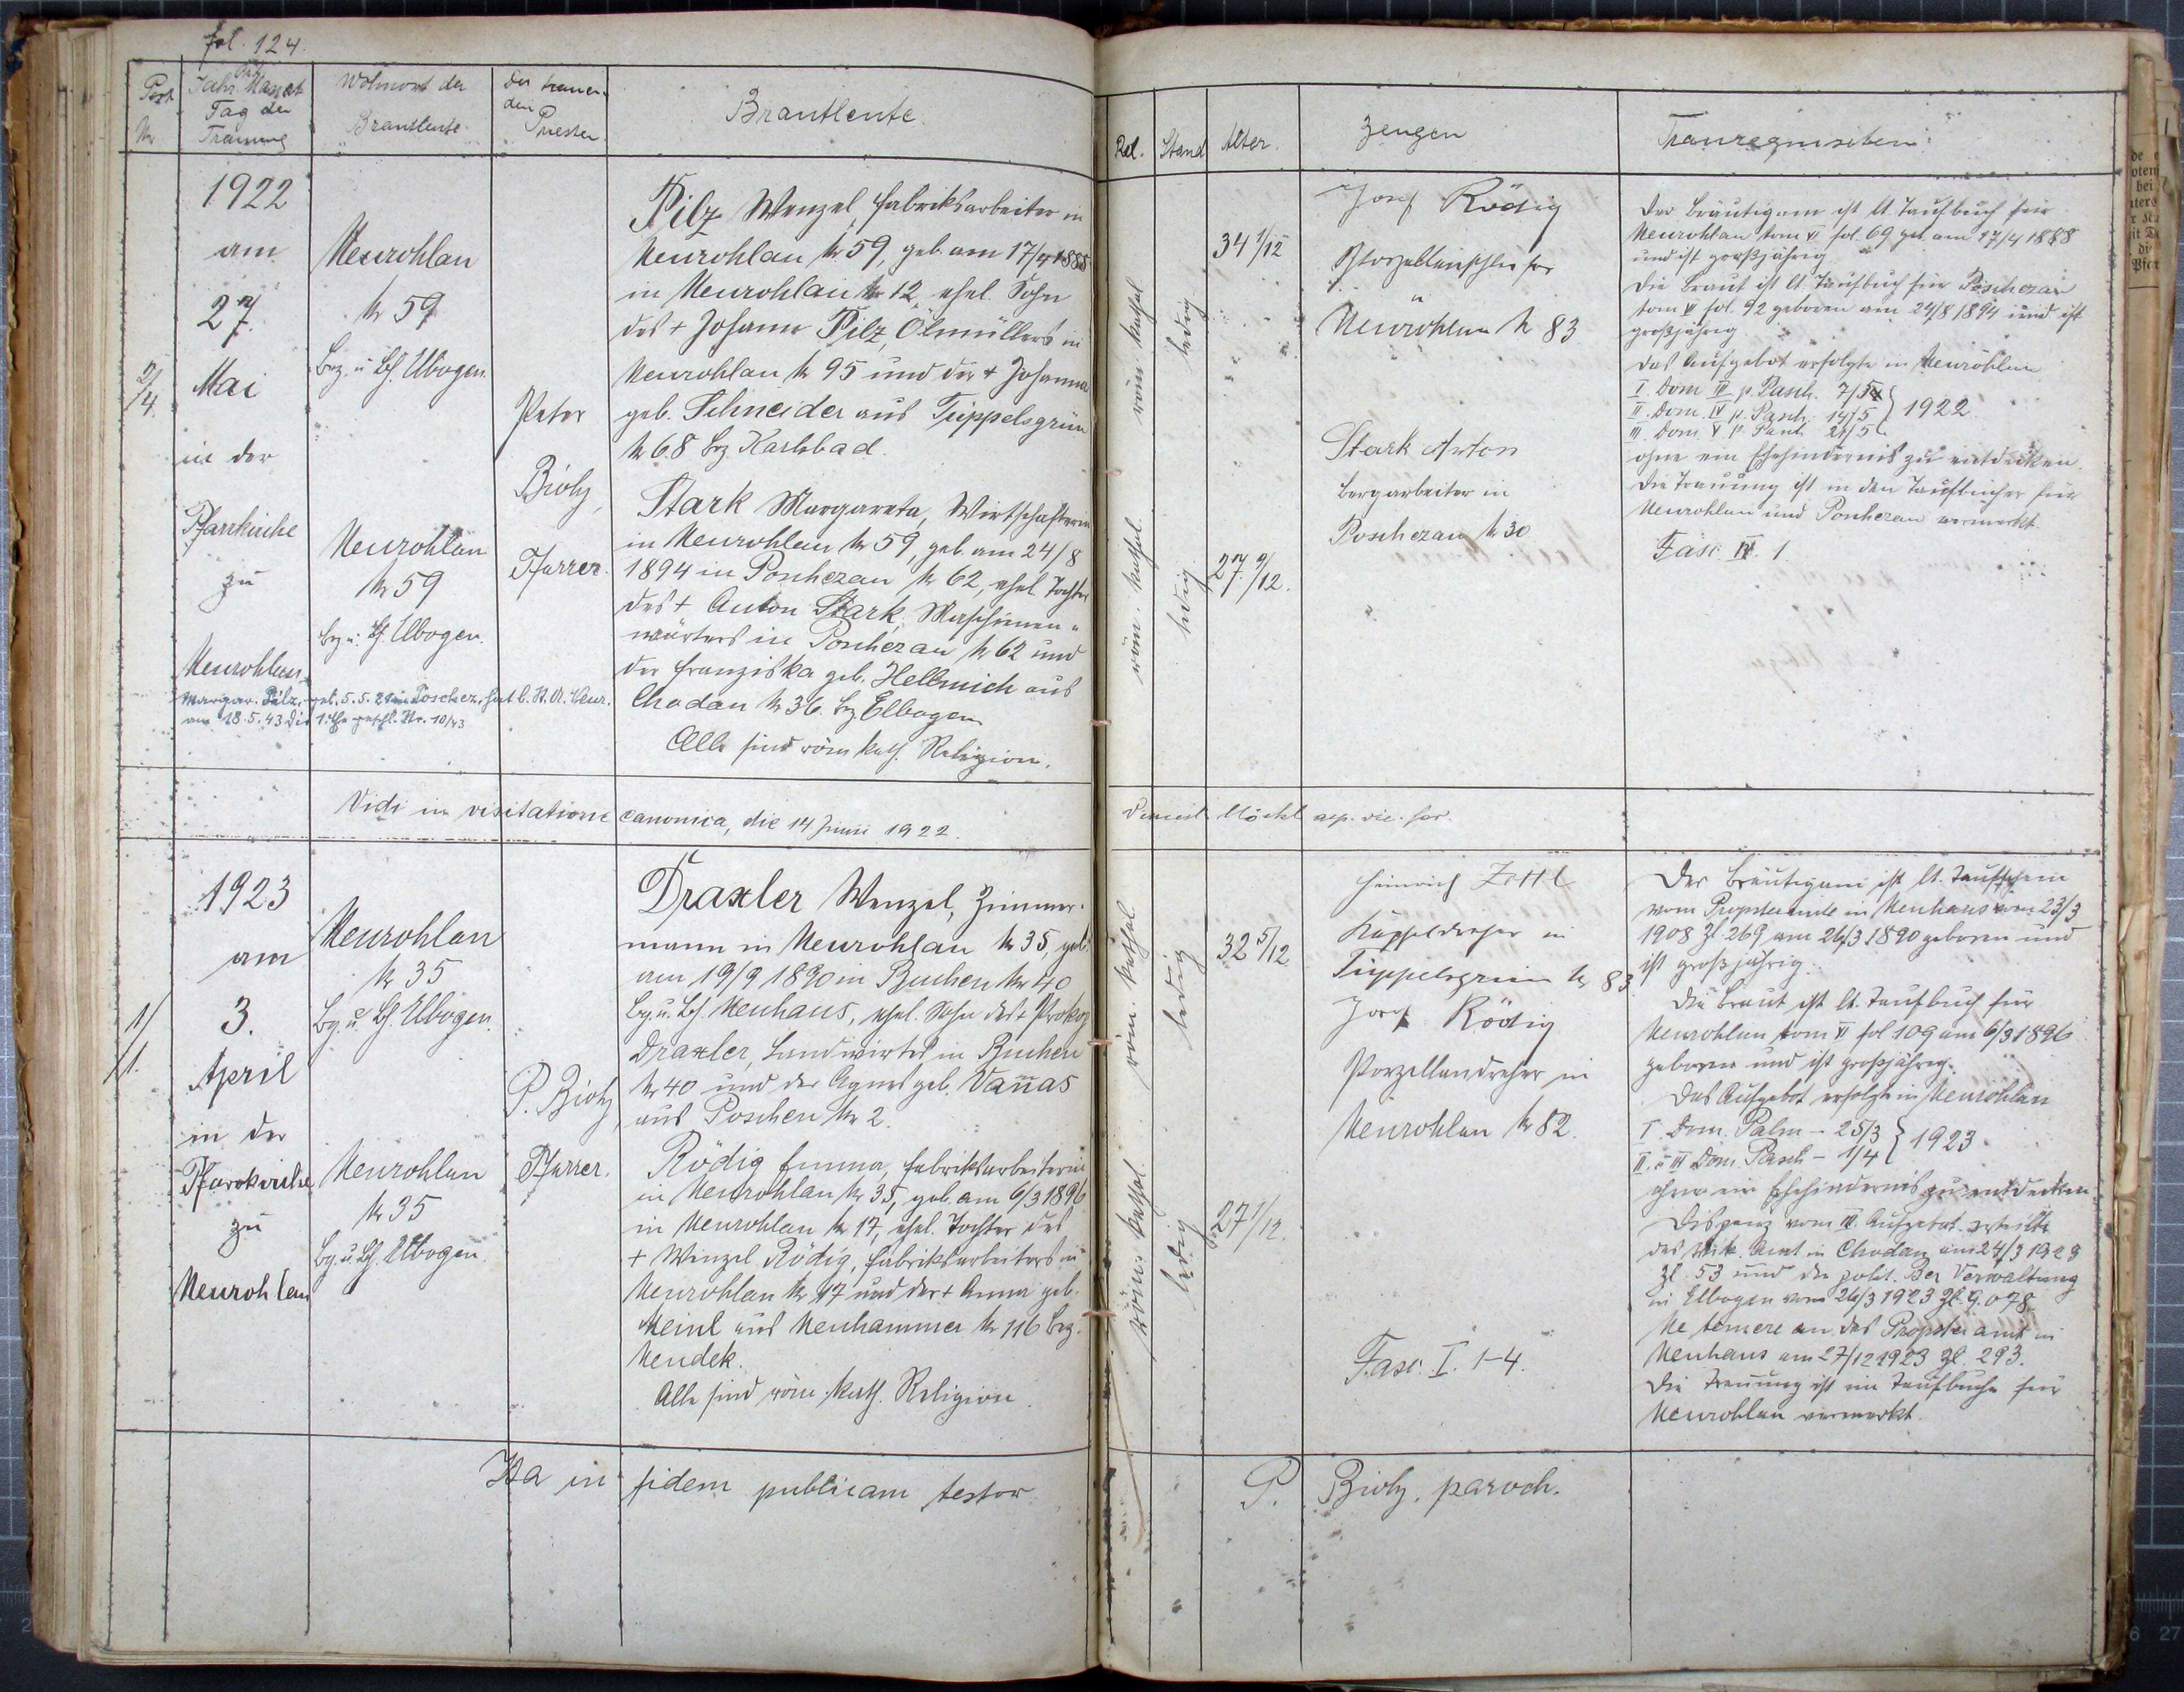 fol. 124.
Post Nr
Jahr Monat Tag der Trauung
Wohnort der Brautleute
Der trauende Priester
Brautleute
Rel.
Stand
Alter.
Zeugen
Traurequisiten
2/4.
1922
am
27.
Mai
in der
Pfarrkirche
zu
Neurohlau
Neurohlau
Nr 59
Bez. u Bh. Elbogen.
Neurohlau
Nr 59
Bez u. Bh. Elbogen.
Peter
Bioly,
Pfarrer.
Pilz Wenzel, Fabriksarbeiter in
Neurohlau Nr 59, geb. am 17/4 1888
in Neurohlau Nr 12, ehel. Sohn
des + Johann Pilz, Ölmüllers in
Neurohlau Nr 95 und der + Johanna
geb. Schneider aus Tüppelsgrün
Nr 68 Bez Karlsbad.
Stark Margareta, Wirtschafterin
in Neurohlau Nr 59, geb. am 24/8
1894 in Poschezau Nr 62, ehel. Tochter
des + Anton Stark, Maschinen-
wärters in Poschezau Nr 62 und
der Franziska geb. Hellmich aus
Chodau Nr 36. Bez. Elbogen
Alle sind röm. kath. Religion.
Margar. Pilz, geb. 5.5. in Poschez. hat b. St. A. Neur.
am 18.5.43 die 1. Ehe geschl. Nr. 10/43
röm. kathol.
ledig
34 1/12
röm. kathol.
ledig
27 9/12.
Josef Rödig
Porzellanschleifer
in
Neurohlau Nr 83
Stark Anton
Bergarbeiter in
Poschezau Nr 30
Der Bräutigam ist lt. Taufbuch für
Neurohlau tom VI fol. 69 geb. am 17/4 1888
und ist großjährig
Die Braut ist lt. Taufbuch für Poschezau
tom V fol. 92 geboren am 24/8 1894 und ist
großjährig
Das Aufgebot erfolgte in Neurohlau
I. Dom III p. Pasch. 7/5
II. Dom. IV p. Pasch. 14/5 } 1922
III. Dom V p. Pasch. 21/5
ohne ein Ehehindernis zu entdecken.
Die Trauung ist in den Taufbücher für
Neurohlau und Poschezau vermerkt.
Fasc. IV. 1.
Vidi in visitatione canonica, die 14 Junii 1922.
1/1.
1923
am
3.
April
in der
Pfarrkirche
zu
Neurohlau
Neurohlau
Nr 35
Bz. u. Bh. Elbogen.
Neurohlau
Nr 35
Bz. u. Bh. Elbogen.
P. Bioly,
Pfarrer.
Draxler Wenzel, Zimmer-
mann in Neurohlau Nr 35, geb.
am 19/9 1890 in Buchen Nr 40
Bz u. Bh. Neuhaus, ehel. Sohn des + Prokop
Draxler, Landwirtes in Buchen
Nr 40 und der Agnes geb. Vaňas
aus Poschen Nr 2.
Rödig Emma, Fabriksarbeiterin
in Neurohlau Nr 35, geb. am 6/3 1896
in Neurohlau Nr 17, ehel. Tochter des
+ Wenzel Rödig, Fabriksarbeiters in
Neurohlau Nr 17 und der + Anna geb.
Meinl aus Neuhammer Nr 116 Bez.
Neudek.
Alle sind röm. kath. Religion.
röm kathol
ledig
32 5/12
röm. kathol.
ledig
27 1/12.
Heinrich Zettl
Kapseldreher in
Tüppelsgrün Nr 83
Josef Rödig
Porzellandreher in
Neurohlau Nr 82.
Fasc. I. 1-4.
Der Bräutigam ist lt. Taufschein
vom Propsteiamte in Neuhaus vom 23/3
1908 Zl. 269 am 26/3 1890 geboren und
ist großjährig.
Die Braut ist lt. Taufbuch für
Neurohlau tom VI fol 109 am 6/3 1896
geboren und ist großjährig.
Das Aufgebot erfolgte in Neurohlau
I. Dom. Palm - 25/3 } 1923
II. u III Dom. Pasch - 1/4
ohne ein Ehehindernis zu entdecken.
Dispenz vom III. Aufgebot erteilte
das Vik. Amt in Chodau am 24/3 1923
Zl. 53 und die polit. Bez Verwaltung
in Elbogen vom 26/3 1923 Zl. 9.078.
Ne temere an das Propsteiamt in
Neuhaus am 27/12 1923 Zl. 293.
Die Trauung ist im Taufbuche für
Neurohlau vermerkt.
Ita in fidem publicam testor P. Bioly, paroch.